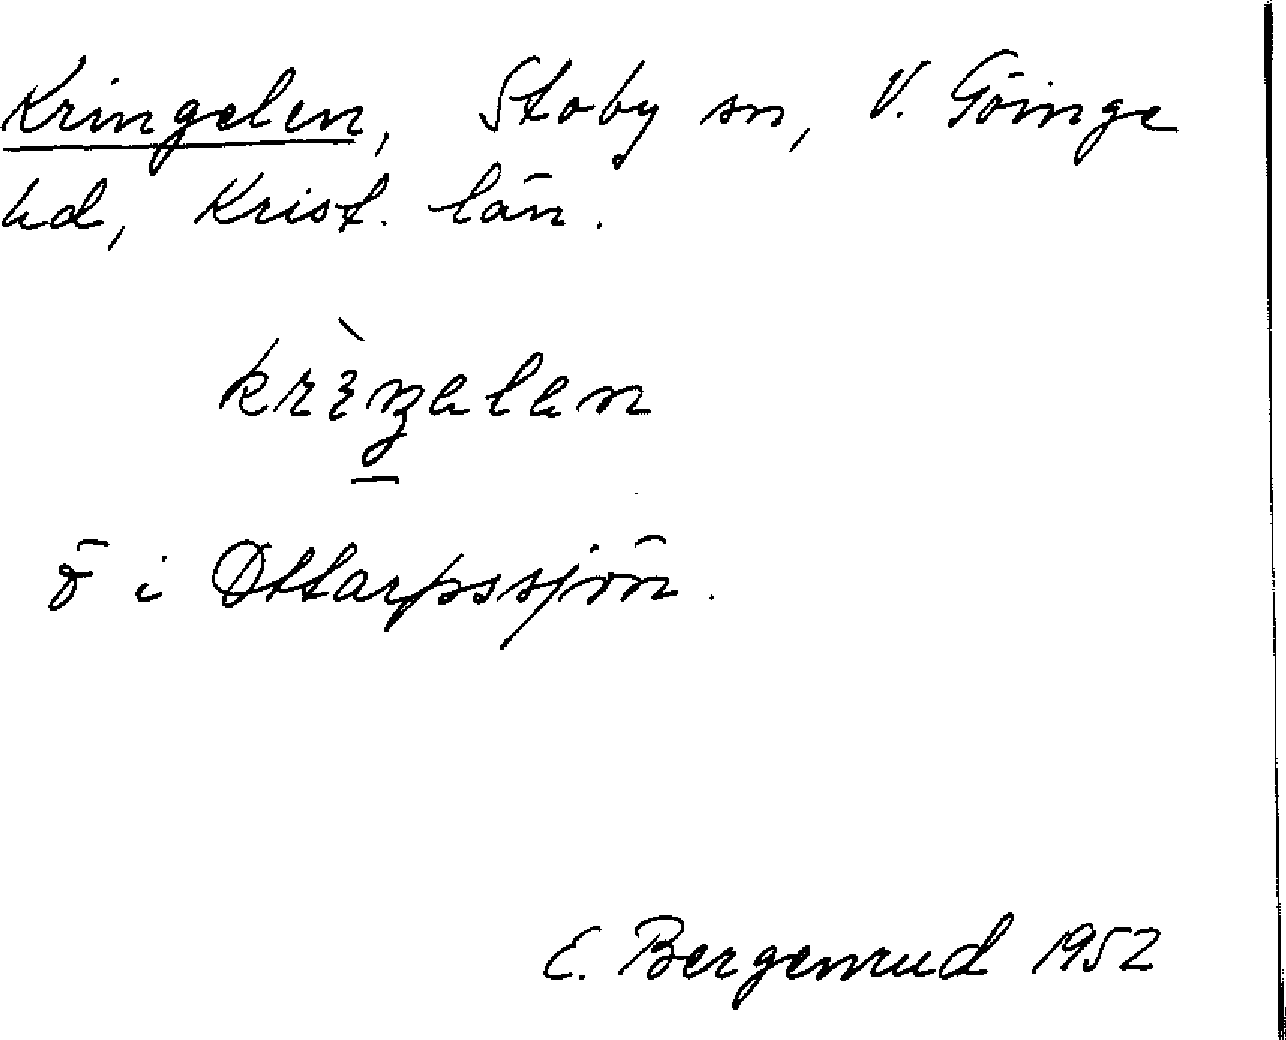 Kringelen, Stoby sn, V. Göinge
hd, Krist. län.
ö i Ottarpssjön.
E. Bergenrud 1952